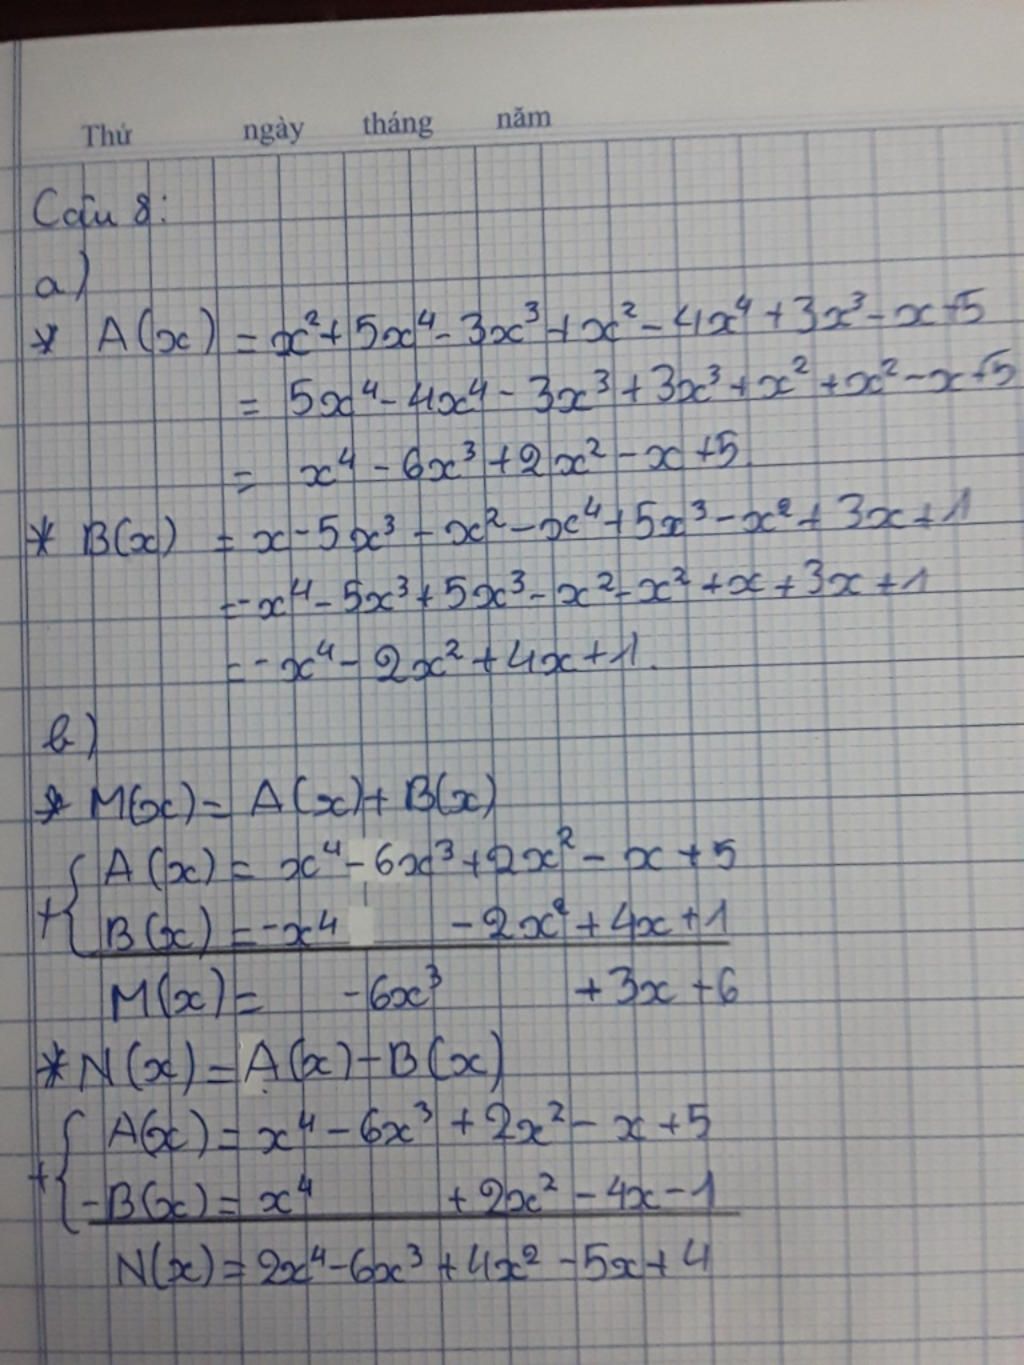 Thứ ngày tháng năm
Câu 8:
a)
* A(x) = x² + 5x⁴ - 3x³ + x² - 4x⁴ + 3x³ - x + 5
= 5x⁴ - 4x⁴ - 3x³ + 3x³ + x² + x² - x + 5
= x⁴ - 6x³ + 2x² - x + 5
* B(x) = x - 5x³ - x² - x⁴ + 5x³ - x² + 3x + 1
= -x⁴ - 5x³ + 5x³ - x² - x² + x + 3x + 1
= -x⁴ - 2x² + 4x + 1.
b)
* M(x) = A(x) + B(x)
A(x) = x⁴ - 6x³ + 2x² - x + 5
+ { B(x) = -x⁴ - 2x² + 4x + 1
M(x) = -6x³ + 3x + 6
* N(x) = A(x) - B(x)
A(x) = x⁴ - 6x³ + 2x² - x + 5
+ { -B(x) = x⁴ + 2x² - 4x - 1
N(x) = 2x⁴ - 6x³ + 4x² - 5x + 4